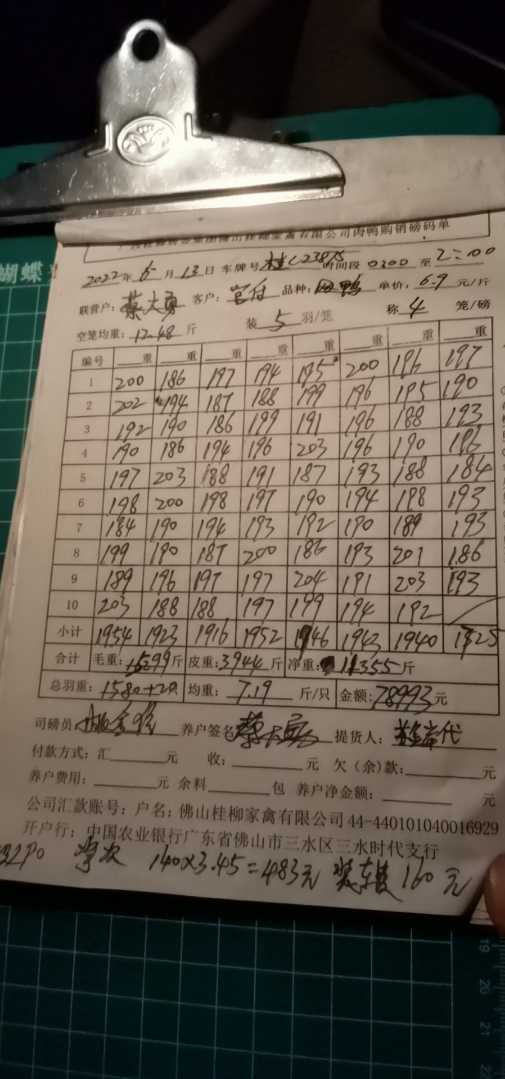 家禽有限公司肉鸭购销磅码单
2022年 6 月 13 日 车牌号 时间段 0300 至 2:00
联营户: 蔡大勇 客户: 品种: 肉鸭 单价: 6.9 元/斤
空笼均重: 12.48 斤 装 5 羽/笼 称 4 笼/磅
编号 重 重 重 重 重 重 重 重
1 200 186 197 194 195 200 196 197
2 202 194 187 188 199 196 195 190
3 192 190 186 199 191 196 188 193
4 190 186 194 196 203 196 190 193
5 197 203 188 191 187 193 188 184
6 198 200 198 197 190 194 198 193
7 184 190 194 193 192 190 189 193
8 199 190 187 200 186 193 201 186
9 189 196 197 197 204 191 203 193
10 203 188 188 197 199 194 192
小计 1954 1923 1916 1952 1946 1943 1940
合计 毛重: 斤 皮重: 3944 斤 净重: 11355 斤
总羽重: 1580+20 均重: 7.19 斤/只 金额: 78993 元
司磅员 养户签名 提货人:
付款方式: 汇 元 收: 元 欠(余)款: 元
养户费用: 元 余料 包 养户净金额: 元
公司汇款账号: 户名: 佛山桂柳家禽有限公司 44-440101040016929
开户行: 中国农业银行广东省佛山市三水区三水时代支行
140×3.45=483元 160 元
蝴蝶
19
20
21
22